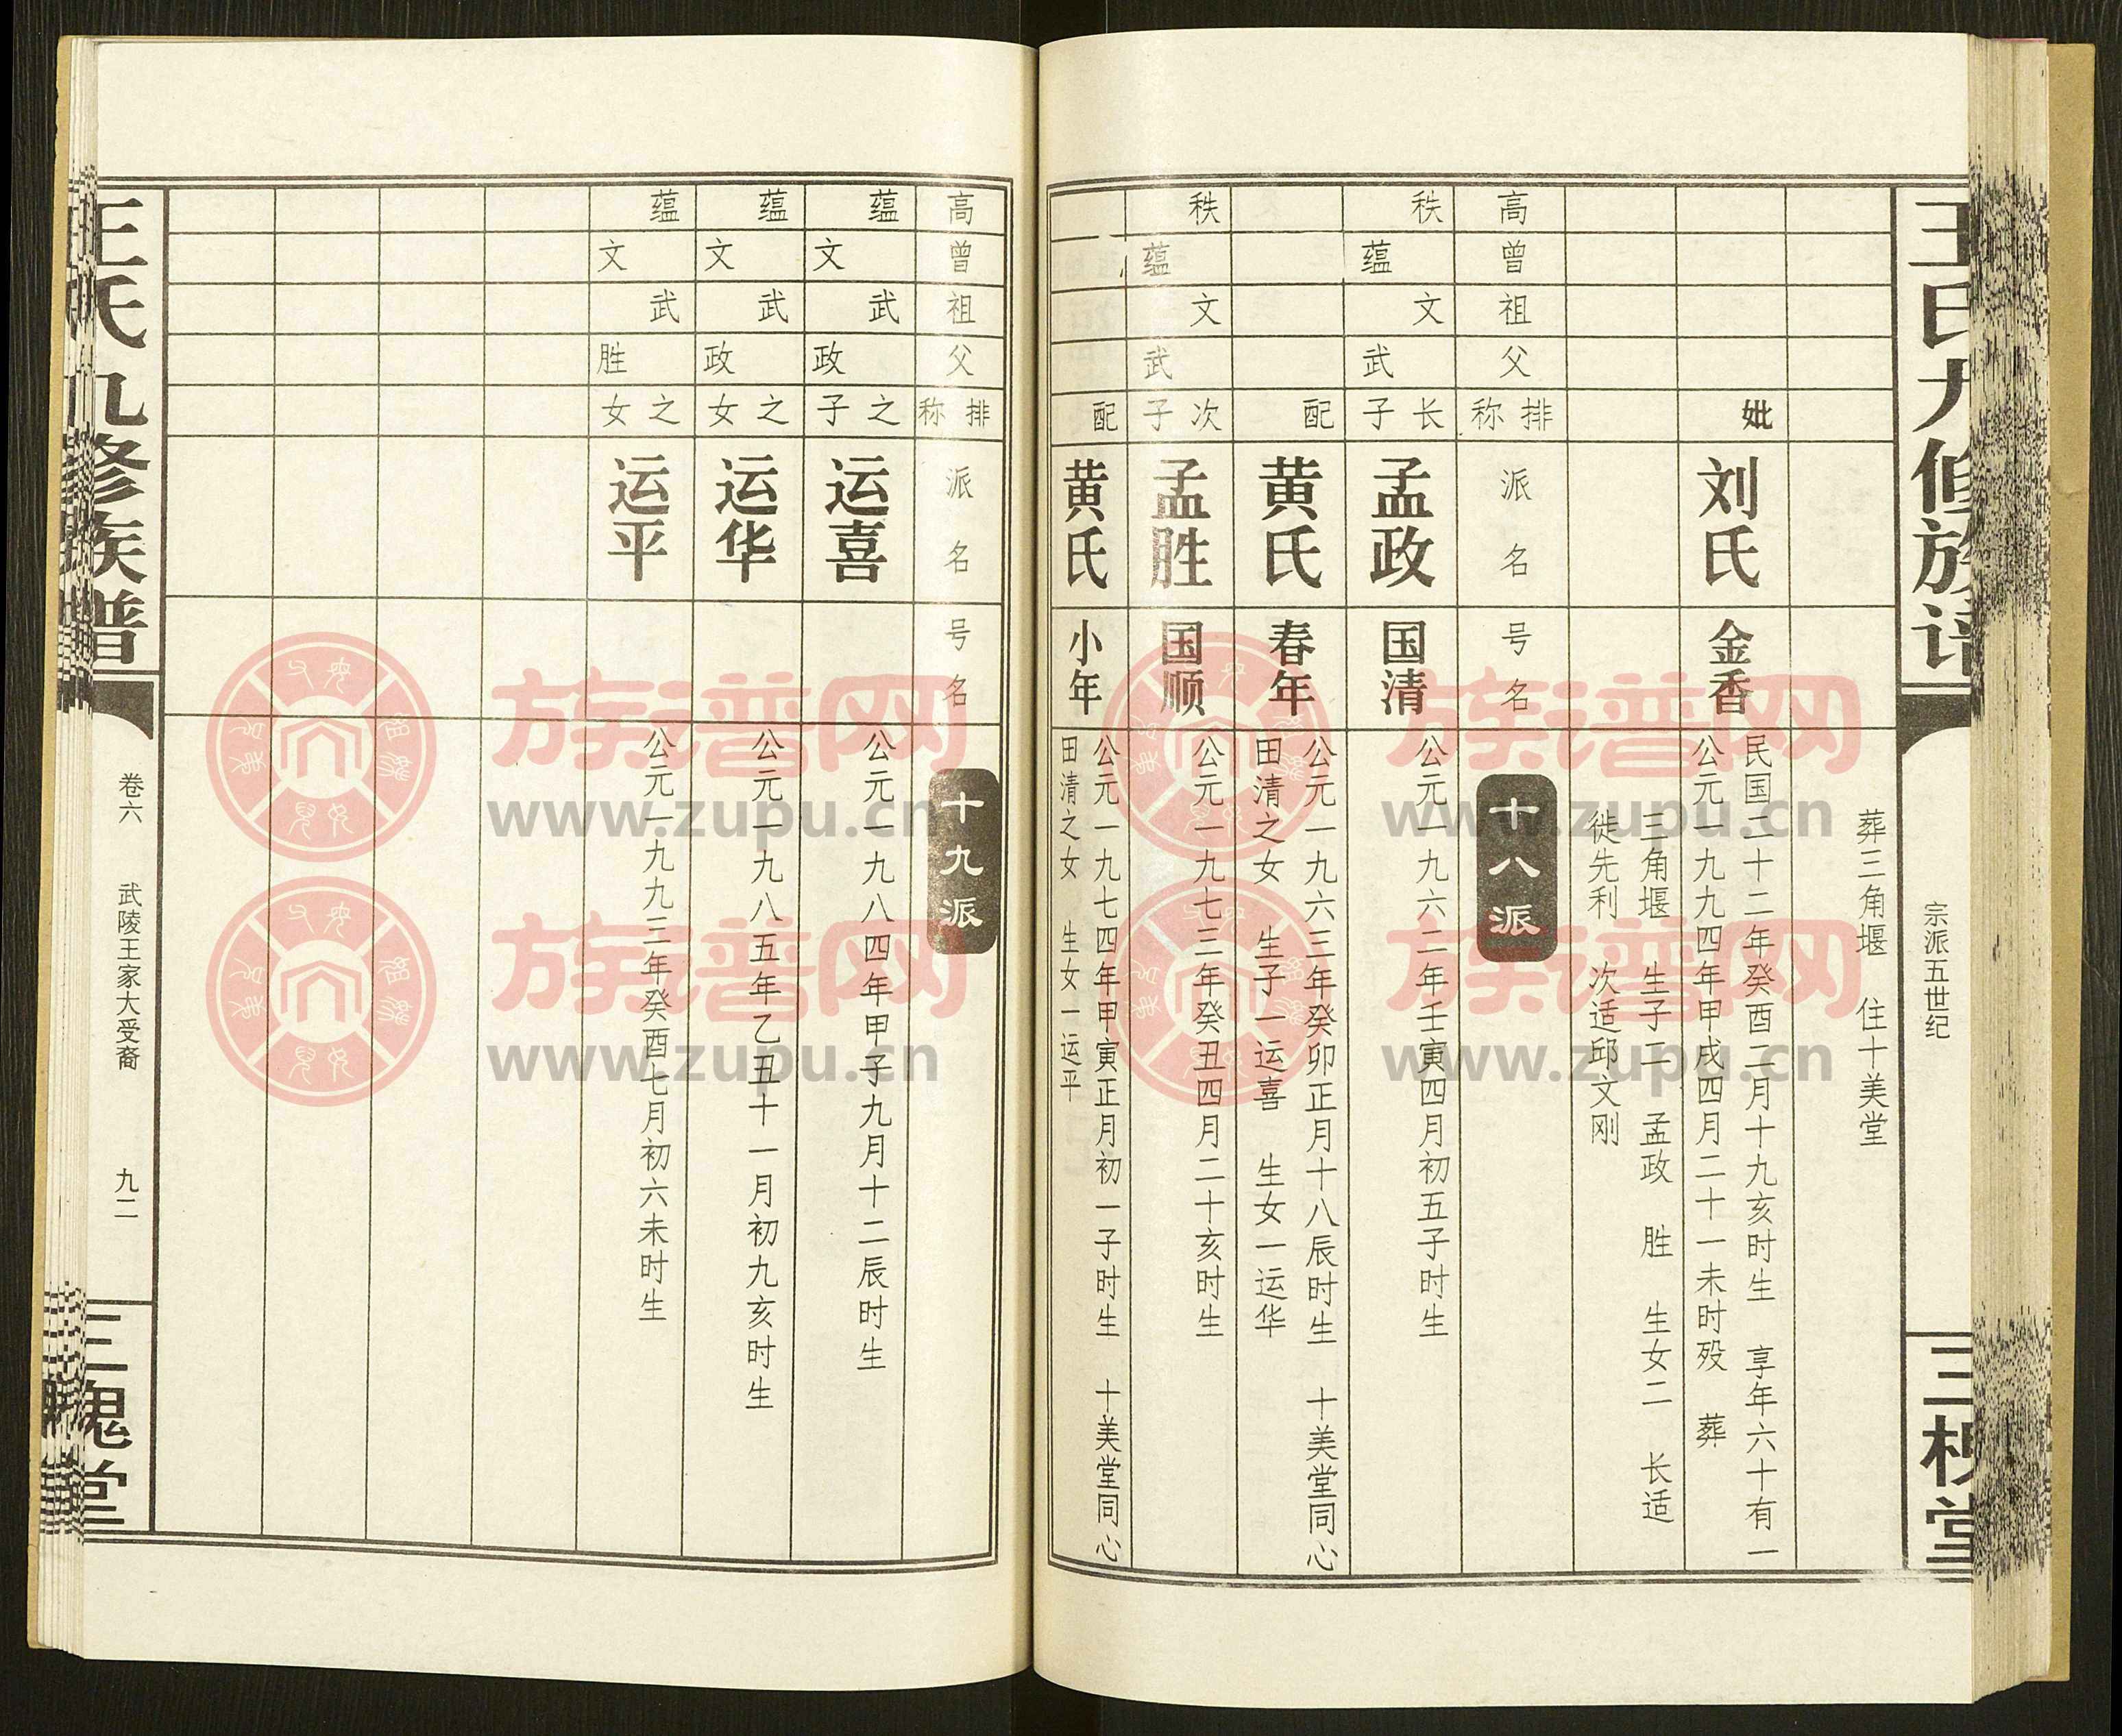 王氏九修族谱
宗派五世纪
三槐堂
葬三角堰 住十美堂
妣
刘氏
金香
民国二十二年癸酉二月十九亥时生 享年六十有一
公元一九九四年甲戌四月二十一未时殁 葬
三角堰 生子二 孟政 胜 生女二 长适
徙先利 次适邱文刚
高
曾
祖
父
排称
派名
号名
十八派
秩
蕴
文
武
长子
孟政
国清
公元一九六二年壬寅四月初五子时生
配
黄氏
春年
公元一九六三年癸卯正月十八辰时生 十美堂同心
田清之女 生子一运喜 生女一运华
秩
蕴
文
武
次子
孟胜
国顺
公元一九七三年癸丑四月二十亥时生
配
黄氏
小年
公元一九七四年甲寅正月初一子时生 十美堂同心
田清之女 生女一运平
高
曾
祖
父
排称
派名
号名
十九派
蕴
文
武
政
之子
运喜
公元一九八四年甲子九月十二辰时生
蕴
文
武
政
之女
运华
公元一九八五年乙丑十一月初九亥时生
蕴
文
武
胜
之女
运平
公元一九九三年癸酉七月初六未时生
王氏九修族谱
卷六 武陵王家大受裔 九二
三槐堂
族谱网
www.zupu.cn
族谱网
www.zupu.cn
族谱网
www.zupu.cn
族谱网
www.zupu.cn